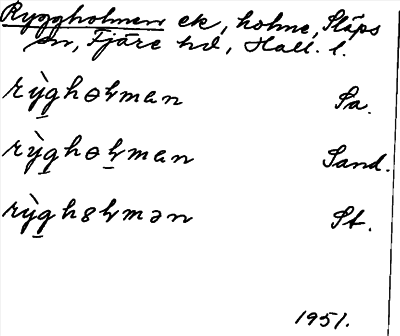 Ryggholmen ek, holme, Släps
sn, Fjäre hd, Hall. l.
rỳghɵɫman Sa.
rỳghɵɫman Sand.
rỳgh8ɫmən St.
1951.